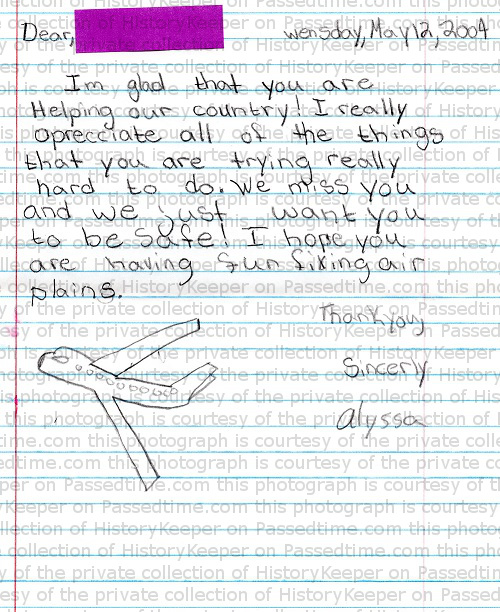 Dear,
wensday, May 12, 2004
Im glad that you are
Helping our country! I really
oprecciate all of the things
that you are trying really
hard to do. We miss you
and we just want you
to be safe! I hope you
are having fun fixing air
plains.
Thank you
Sincerly
Alyssa
this photograph is courtesy of the private collection of HistoryKeeper on Passedtime.com